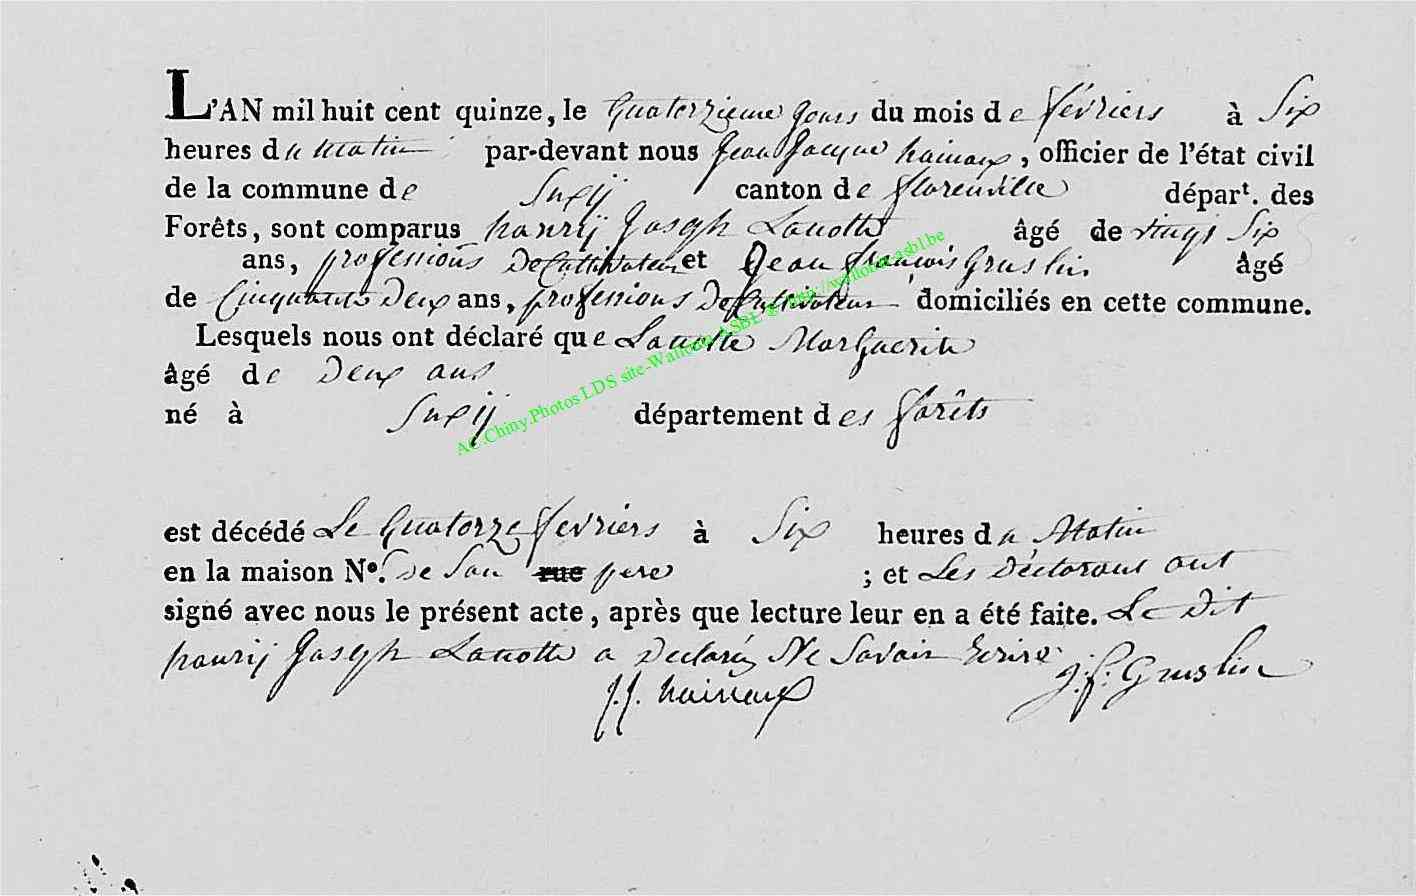 L'AN mil huit cent quinze, le Quatorzieme jours du mois de févriers à Six
heures du Matin par-devant nous Jean Jacque hainaux, officier de l'état civil
de la commune de Suxij canton de florenville départ. des
Forêts, sont comparus hanrij Joseph Lanotte âgé de vingt Six
ans, professions De Cultivateur et Jean françois Gruslin âgé
de Cinquante Deux ans, professions De Cultivateur domiciliés en cette commune.
Lesquels nous ont déclaré que Lanotte Marguerite
âgé de Deux ans
né à Suxij département des forêts
AC.Chiny.Photos LDS site-Wallonia ASBL @ http://wallonia-asbl.be
est décédé Le Quatorze fevriers à Six heures du Matin
en la maison Nº. de Son rue pere ; et Les Déclarant ont
signé avec nous le présent acte, après que lecture leur en a été faite. Le Dit
hanrij Joseph Lanotte a Declaréz Ne Savoir Ecrire
J.J. hainaux J.f. Gruslin